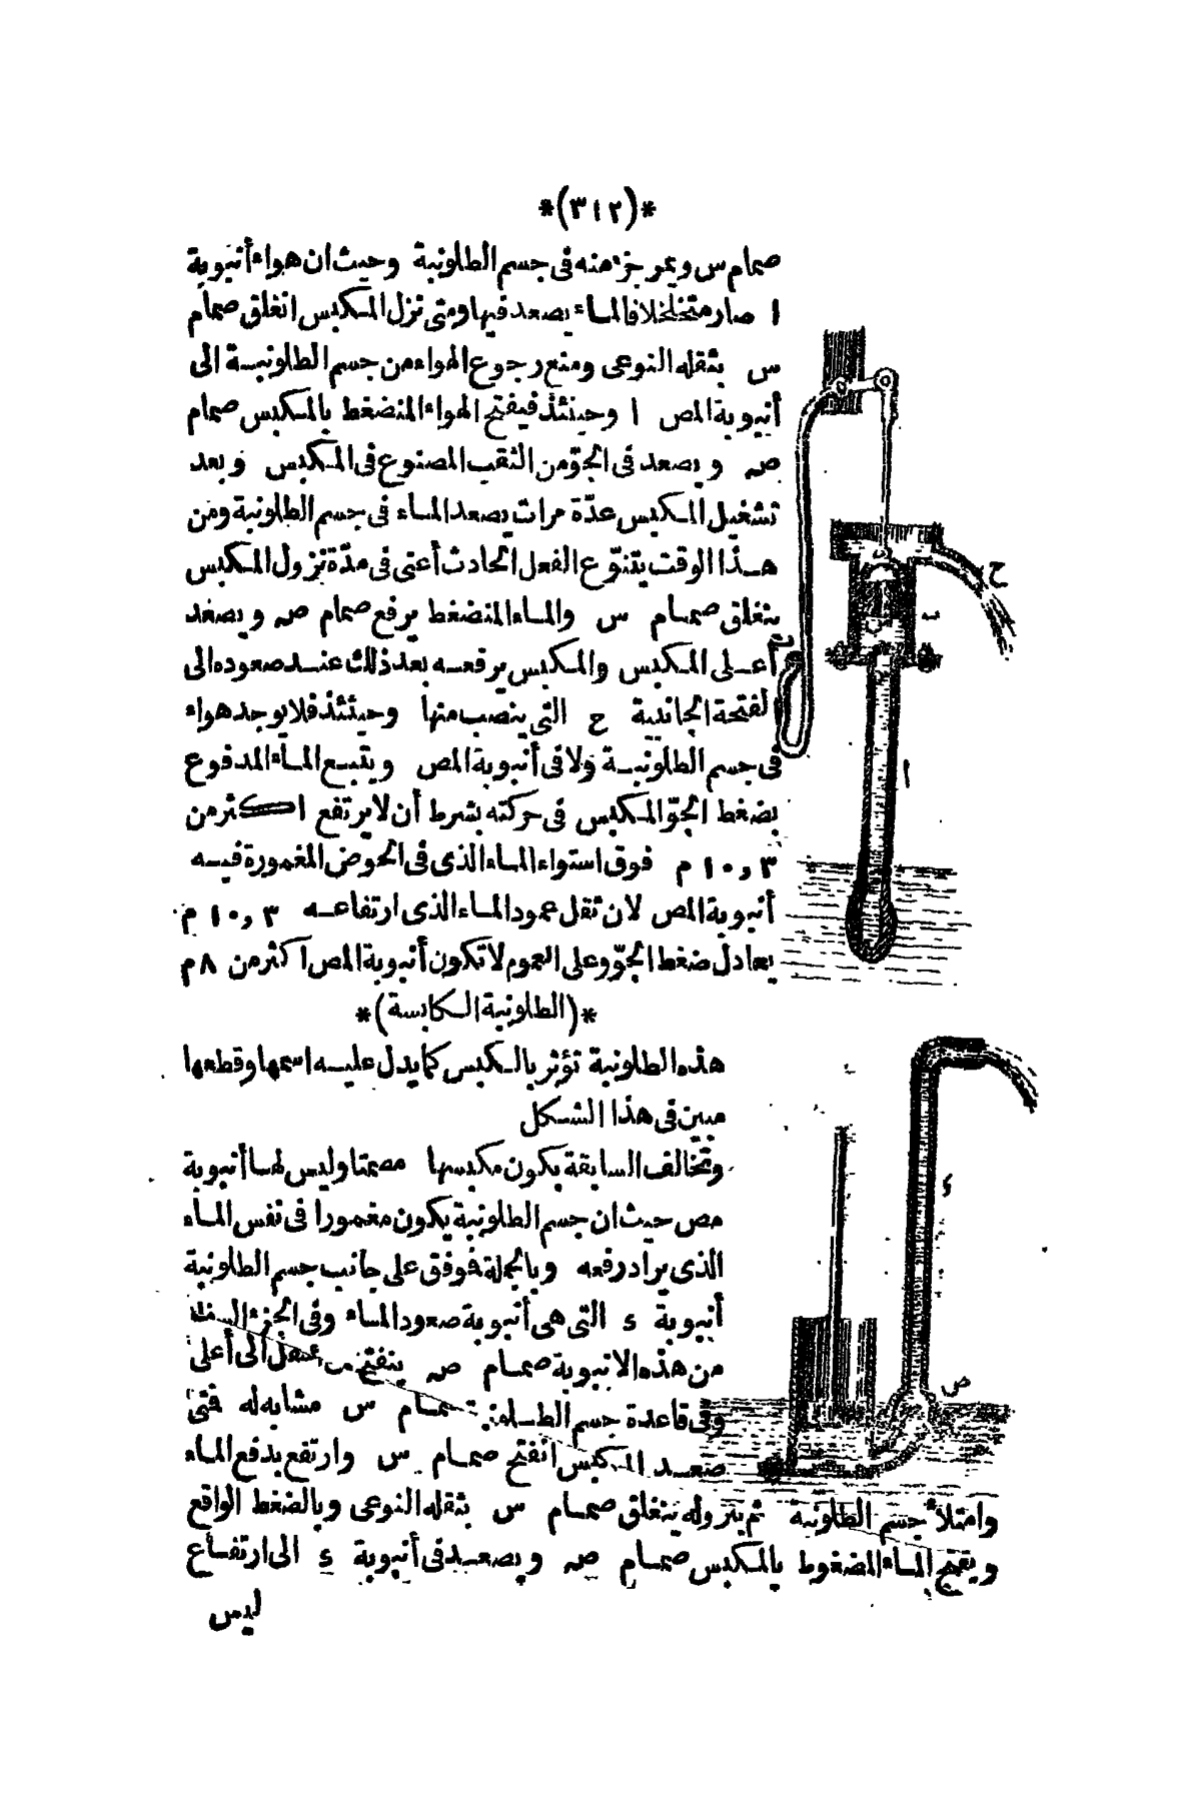 *(٣١٢)*
صمام س ويمر جزء منه فى جسم الطلونبة وحيث ان هواء أنبوبة
ا صار متخلخلا فالماء يصعد فيها ومتى نزل المكبس انغلق صمام
س بثقله النوعى ومنع رجوع الهواء من جسم الطلونبة الى
أنبوبة المص ا وحينئذ فيفتح الهواء المنضغط بالمكبس صمام
ص ويصعد فى الجوّ من الثقب المصنوع فى المكبس وبعد
تشغيل المكبس عدّة مرات يصعد الماء فى جسم الطلونبة ومن
هذا الوقت يتنوّع الفعل الحادث أعنى فى مدّة نزول المكبس
ينغلق صمام س والماء المنضغط يرفع صمام ص ويصعد
أعلى المكبس والمكبس يرفعه بعد ذلك عند صعوده الى
الفتحة الجانبية ح التى ينصب منها وحينئذ فلا يوجد هواء
فى جسم الطلونبة ولا فى أنبوبة المص ويتبع الماء المدفوع
بضغط الجوّ المكبس فى حركته بشرط أن لا يرتفع اكثر من
١٠,٣ م فوق استواء الماء الذى فى الحوض المغمورة فيه
أنبوبة المص لان ثقل عمود الماء الذى ارتفاعه ١٠,٣ م
يعادل ضغط الجوّ وعلى العموم لا تكون أنبوبة المص اكثر من ٨ م
*(الطلونبة الكابسة)*
هذه الطلونبة تؤثر بالكبس كما يدل عليه اسمها وقطعها
مبين فى هذا الشكل
وتخالف السابقة بكون مكبسها مصمتا وليس لها أنبوبة
مص حيث ان جسم الطلونبة يكون مغمورا فى نفس الماء
الذى يراد رفعه وبالجملة فوفق على جانب جسم الطلونبة
أنبوبة ء التى هى أنبوبة صعود الماء وفى الجزء السفلى
من هذه الانبوبة صمام ص ينفتح من أسفل الى أعلى
وفى قاعدة جسم الطلونبة صمام س مشابه له فمتى
صعد المكبس انفتح صمام س وارتفع بدفع الماء
وامتلأ جسم الطلونبة ثم بنزوله ينغلق صمام س بثقله النوعى وبالضغط الواقع
ويفتح الماء المضغوط بالمكبس صمام ص ويصعد فى أنبوبة ء الى ارتفاع
ليس
ح
ب
ا
ء
ص